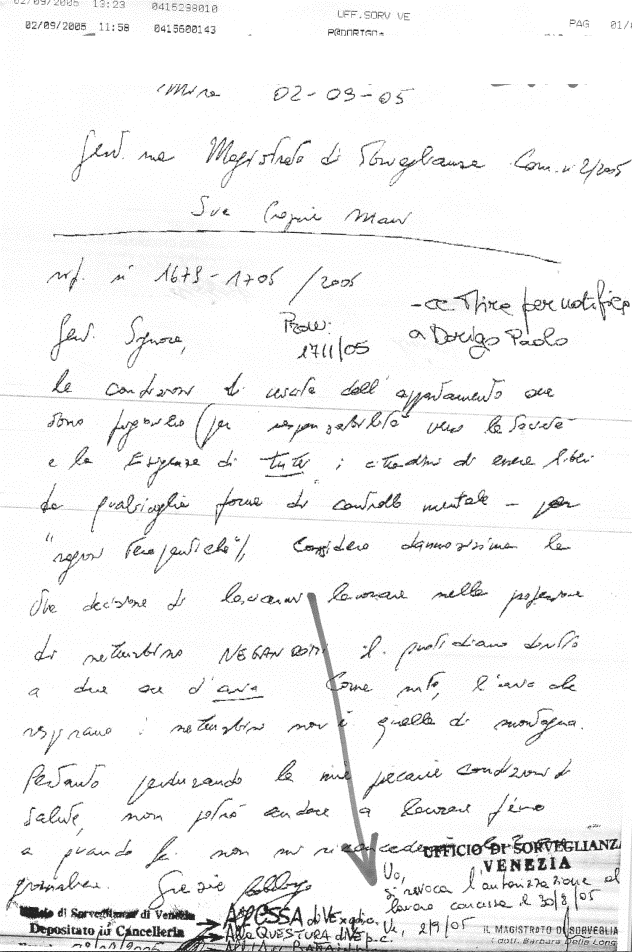 02/09/2005 13:23 0415298010 UFF.SORV VE
02/09/2005 11:58 0415600143 P@DORIGO* PAG 01/
Mira 02-09-05
Gent. ma Magistrato di Sorveglianza Com. n 2/2005
rif. n 1679-1705 /2005
- cc Mira per notifica
a Dorigo Paolo
Prow:
1711/05
Gent. Signora,
le condizioni di uscita dall'appartamento ove
sono (per responsabilità verso la Società
e la Esigenza di tutti i cittadini di essere liberi
da qualsivoglia forma di controllo mentale - per
"ragioni terapeutiche"), considero dannosissima la
Sua decisione di lasciarmi lavorare nella professione
di netturbino NEGANDOMI il quotidiano diritto
a due ore d'aria. Come noto, l'aria che
respirano i netturbini non è quella di montagna.
Pertanto perdurando le mie precarie condizioni di
salute, non potrò andare a lavorare fino
a quando Lei non mi
giornaliere. Grazie
UFFICIO DI SORVEGLIANZA
VENEZIA
Vo,
si revoca l'autorizzazione al
lavoro concessa il 30/8/05
Ve, 2/9/05
IL MAGISTRATO DI SORVEGLIA
(dott. Barbara Della Long
Ufficio di Sorveglianza di Venezia
Depositato in Cancelleria
Alla QUESTURA di VE p.c.